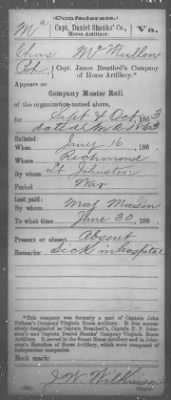 (Confederate.)
Mc Capt. Daniel Shanks' Co., Va.
Horse Artillery.
Chas Mc Quillon
Pvt, Capt. James Breathed's Company
of Horse Artillery.*
Appears on
Company Muster Roll
of the organization named above,
for Sept & Oct, 1863
dated Nov 2 1863
Enlisted:
When Jany 16, 186
Where Richmond
By whom Lt Johnston
Period War
Last paid:
By whom Maj Mason
To what time June 30, 186
Present or absent Absent
Remarks: Sick in hospital
*This company was formerly a part of Captain John
Pelham's Company Virginia Horse Artillery. It was successively
designated as Captain Breathed's, Captain P. P. Johnston's
and Captain Daniel Shanks' Company Virginia Horse
Artillery. It served in the Stuart Horse Artillery and in Johnston's
Battalion of Horse Artillery, which were composed of
independent companies.
Book mark:
J. W. Wilkinson
Copyist.